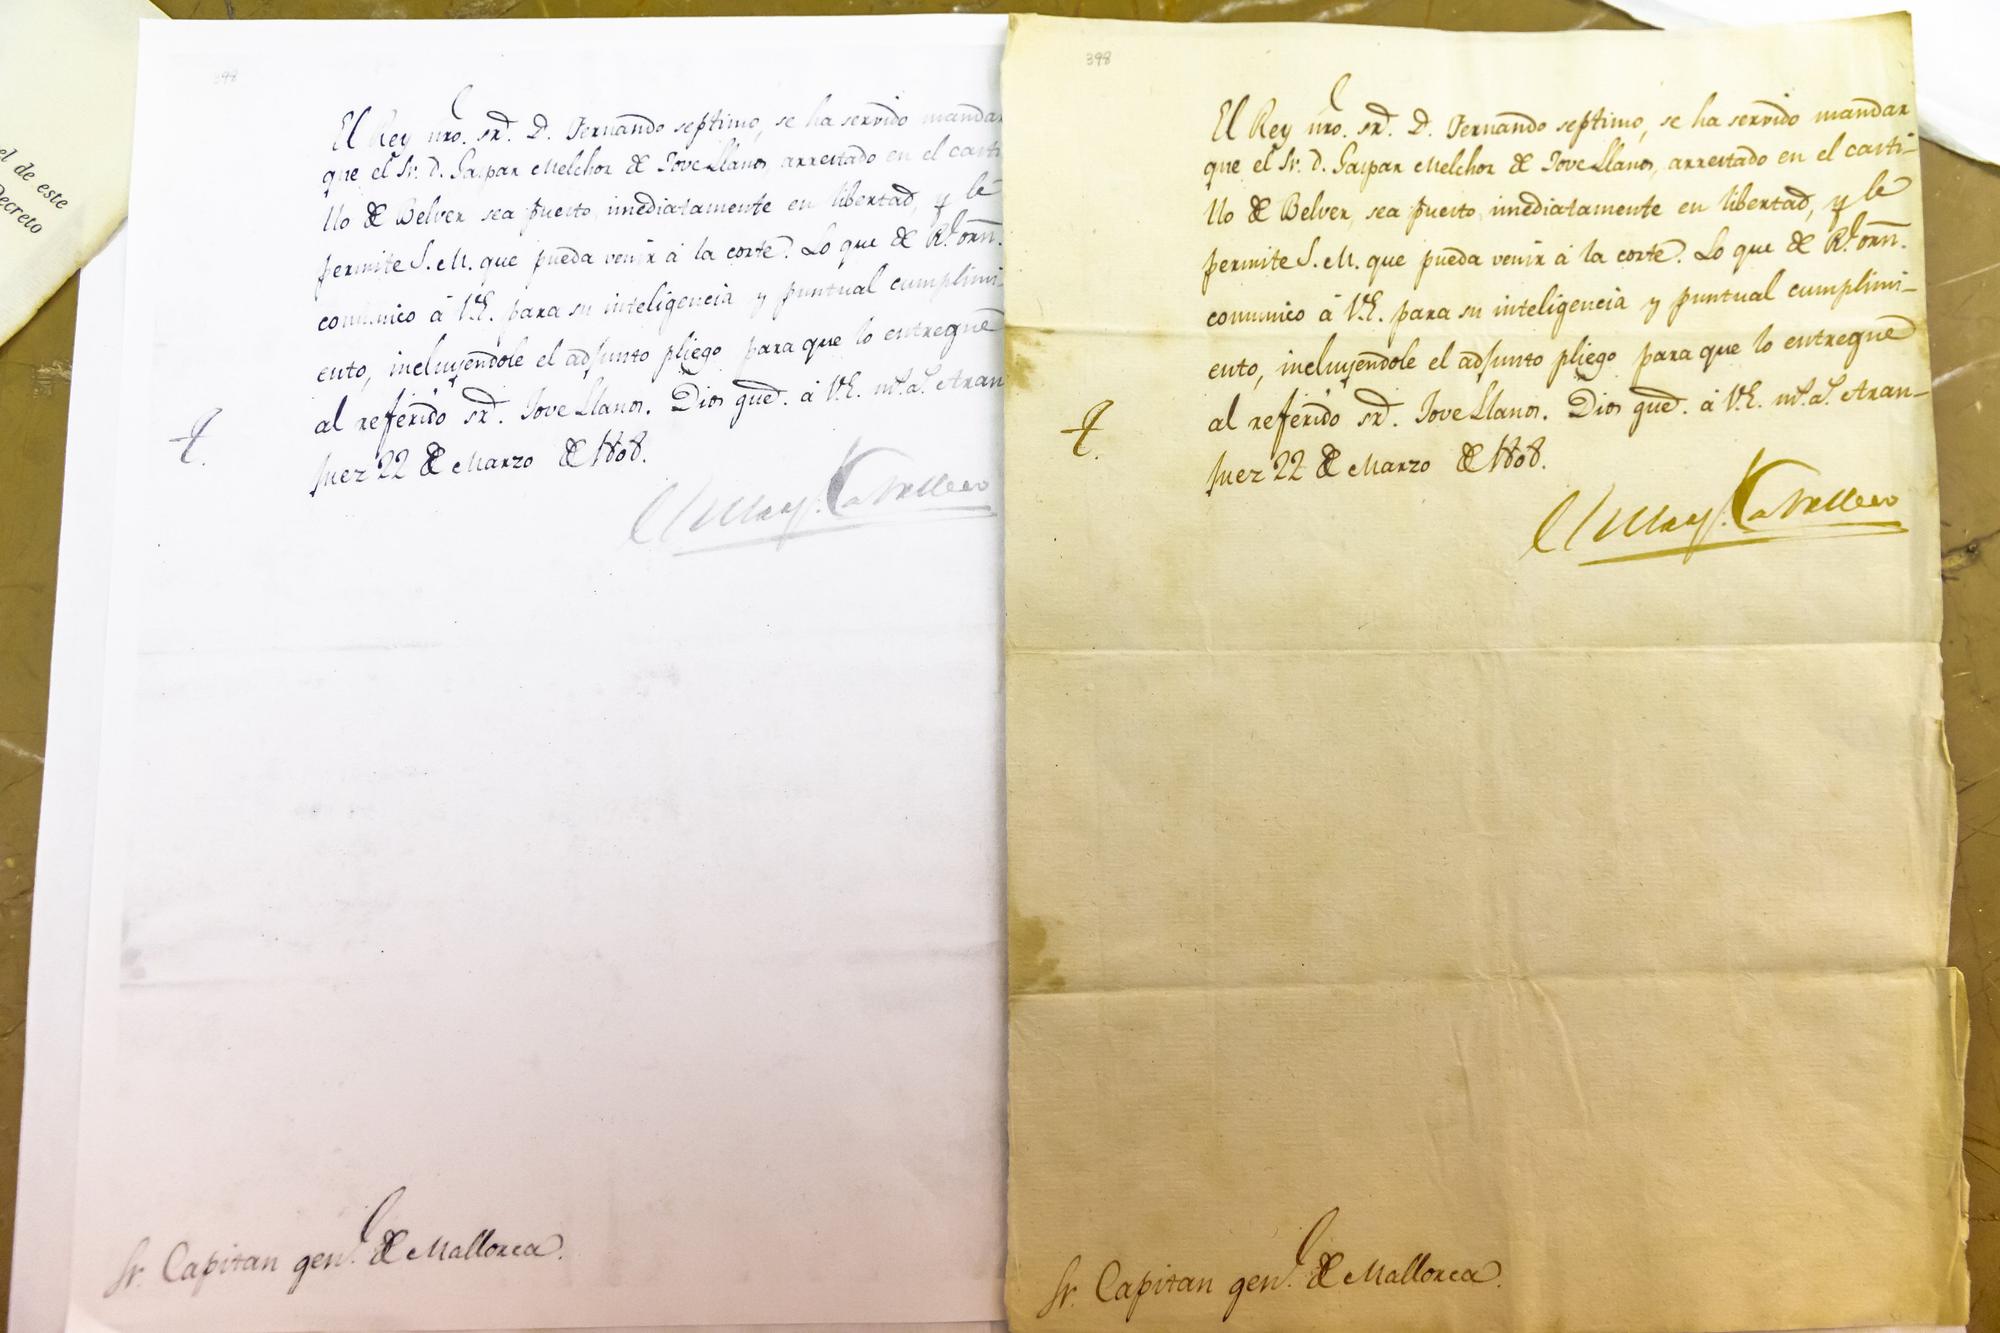 el de este
Decreto
398
El Rey nro. sr. D. Fernando septimo, se ha servido mandar
que el Sr. D. Gaspar Melchor de Jove Llanos, arrestado en el casti
llo de Belver, sea puesto imediatamente en libertad, y le
permite S. M. que pueda venir á la corte. Lo que de Rl. orn.
comunico á V.E. para su inteligencia y puntual cumplimi-
ento, incluyendole el adjunto pliego para que lo entregue
al referido sr. Jove Llanos. Dios gue. á V.E. ms. as. Aran
juez 22 de Marzo de 1808.
El Marqs. Caballero
Sr. Capitan genl. de Mallorca.
398
El Rey nro. sr. D. Fernando septimo, se ha servido mandar
que el Sr. D. Gaspar Melchor de Jove Llanos, arrestado en el casti-
llo de Belver, sea puesto imediatamente en libertad, y le
permite S. M. que pueda venir á la corte. Lo que de Rl. orn.
comunico á V.E. para su inteligencia y puntual cumplimi-
ento, incluyendole el adjunto pliego para que lo entregue
al referido sr. Jove Llanos. Dios gue. á V.E. ms. as. Aran-
juez 22 de Marzo de 1808.
El Marqs. Caballero
Sr. Capitan genl. de Mallorca.